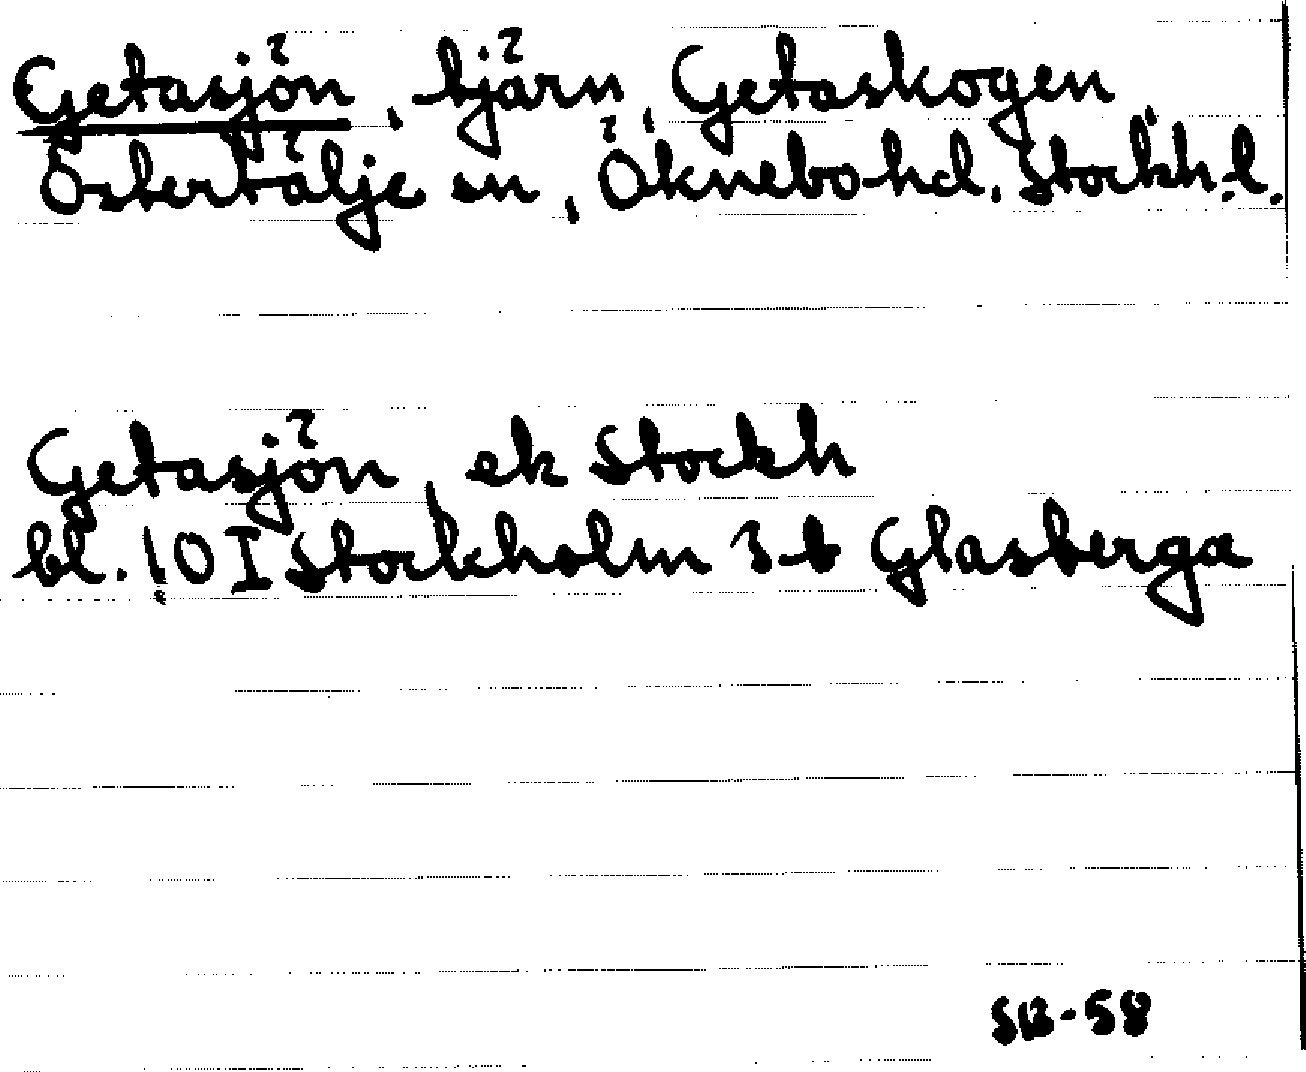 Getasjön, tjärn, Getaskogen,
Östertälje sn, Öknebo hd. Stockh. l.
Getasjön, ek Stockh
bl. 10 I Stockholm 3 b Glasberga
SB-58